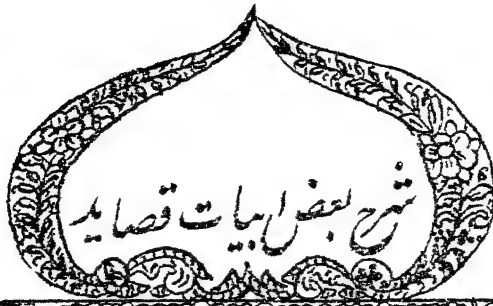 شرح بعض ابیات قصاید